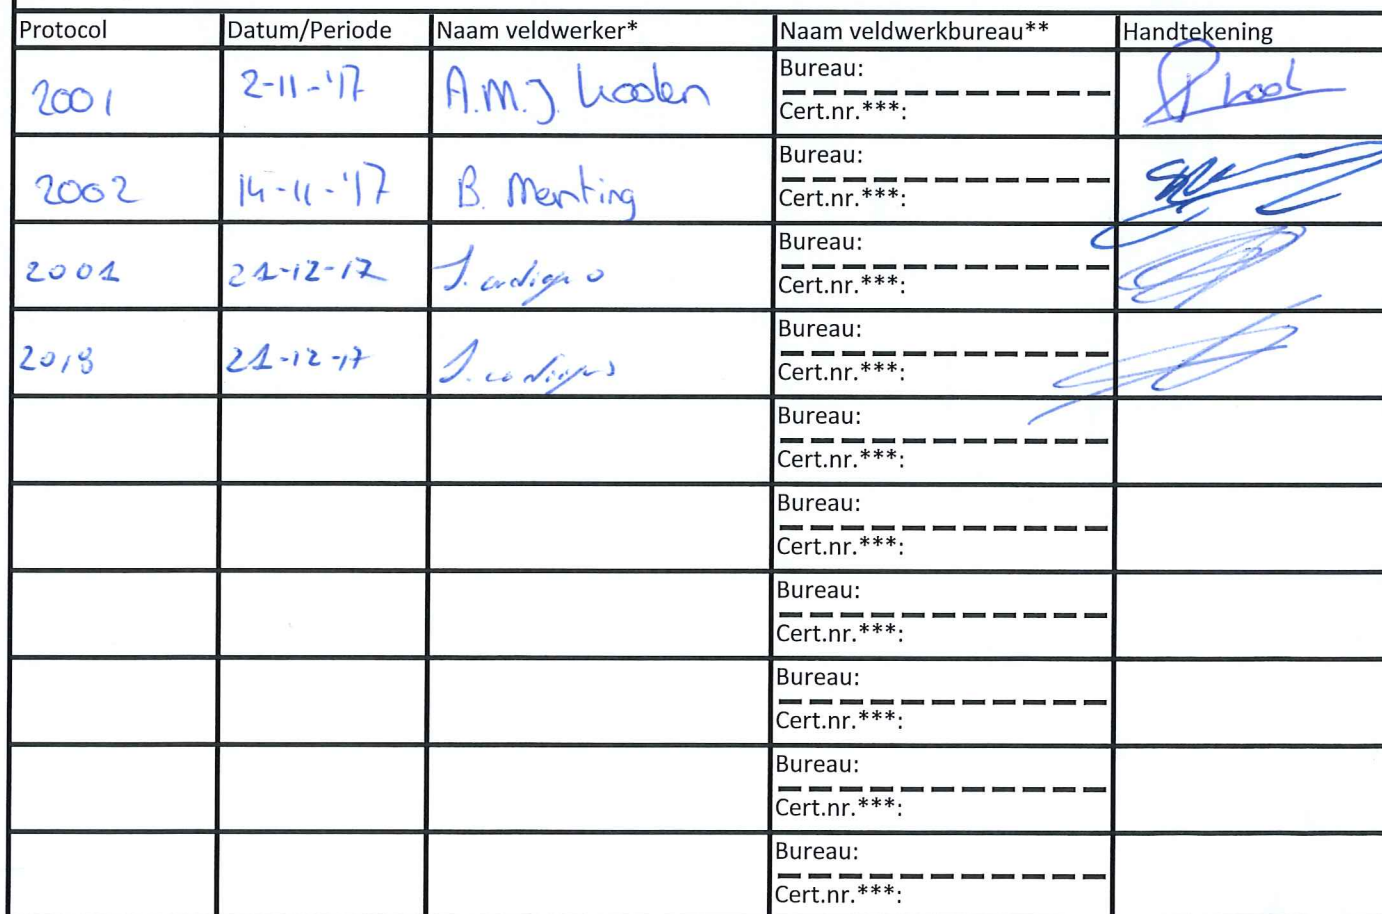 Protocol Datum/Periode Naam veldwerker* Naam veldwerkbureau** Handtekening
Bureau:
2001 2-11-'17 A.M.J. Koolen
Cert.nr.***:
Bureau:
2002 14-11-'17 B. Menting
Cert.nr.***:
Bureau:
2001 21-12-17 J.
Cert.nr.***:
Bureau:
2018 21-12-17 J.
Cert.nr.***:
Bureau:
Cert.nr.***:
Bureau:
Cert.nr.***:
Bureau:
Cert.nr.***:
Bureau:
Cert.nr.***:
Bureau:
Cert.nr.***:
Bureau:
Cert.nr.***: